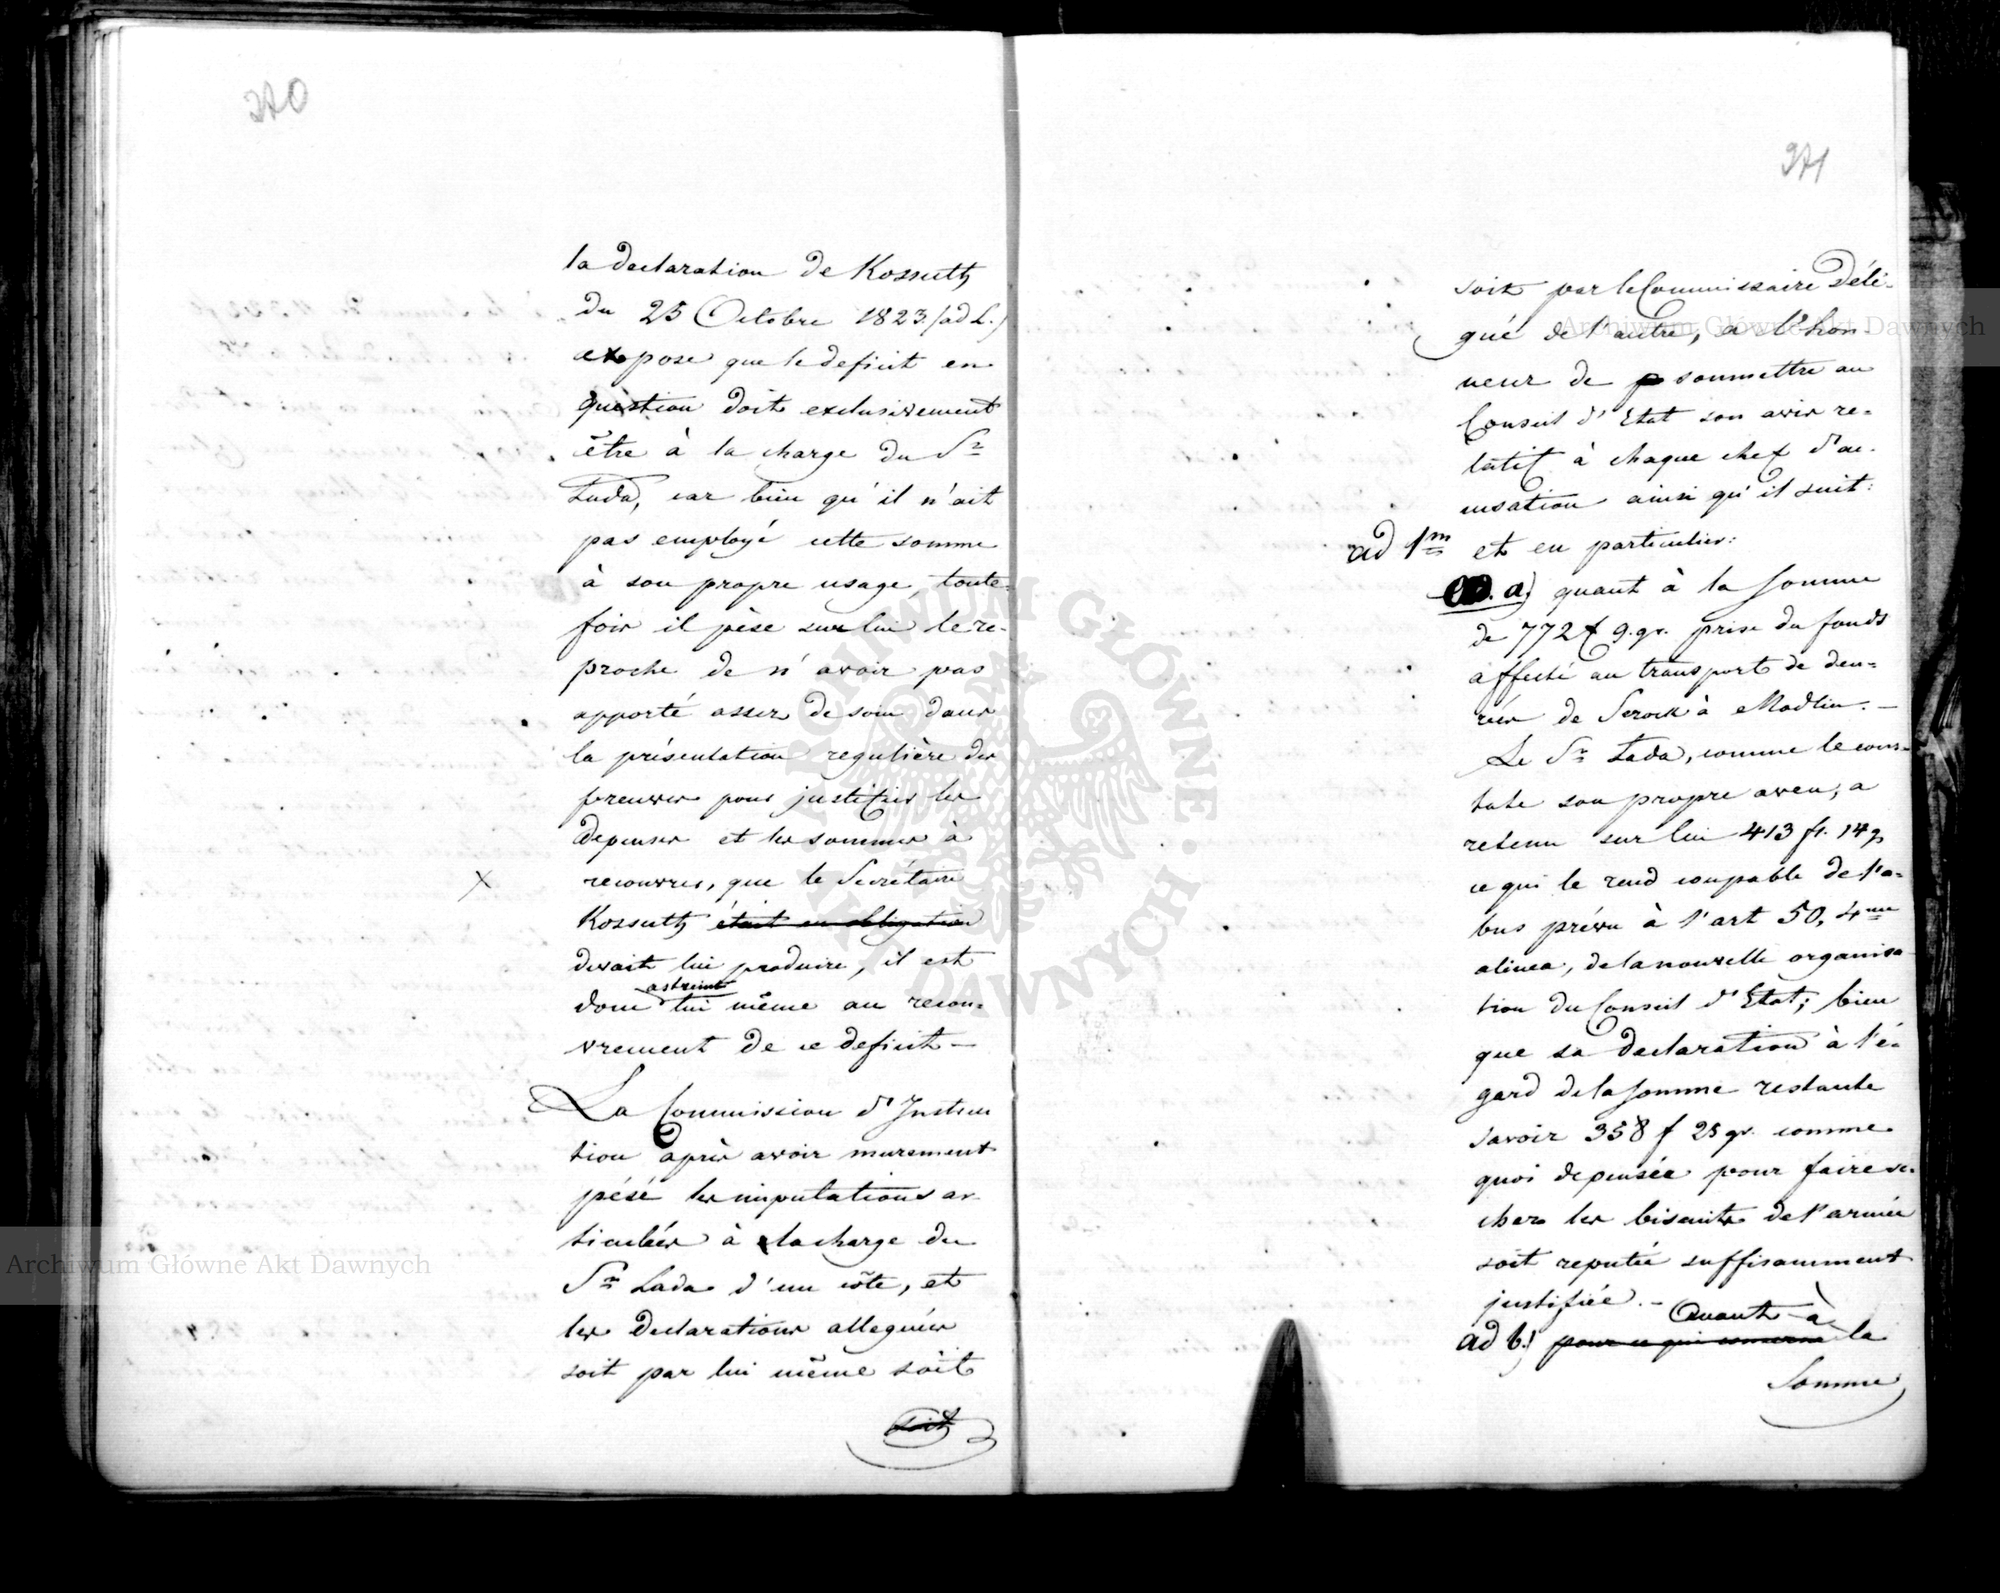 270
la declaration de Kossuth
du 25 Octobre 1823 (ad L.)
expose que le deficit en
question doit exclusivement
être à la charge du Sr
Lada, car bien qu'il n'ait
pas employé cette somme
à son propre usage, toute-
fois il pèse sur lui le re-
proche de n'avoir pas
apporté assez de soin dans
la présentation regulière des
preuves pour justifier les
depenses et les sommes à
recouvrer, que le Secrétaire
Kossuth était en obligation
devait lui produire, il est
astreint
donc lui même au recou-
vrement de ce deficit —
La Commission d'Instruc
tion après avoir murement
pésé les imputations ar-
ticulées à la charge du
Sr Lada d'un côte, et
les declarations alleguées
soit par lui même soit
soit
271
soit par le Commissaire Délé-
gué de l'autre, a l'hon-
neur de soumettre au
Conseil d'Etat son avis re-
latif à chaque chef d'ac-
cusation ainsi qu'il suit:
ad 1m et en particulier:
ad. a) quant à la somme
de 772 f 9. gr. prise du fonds
affecté au transport de den-
rées de Serock à Modlin. —
Le Sr Lada, comme le cons-
tate son propre aveu, a
retenu sur lui 413 fl. 14 g
ce qui le rend coupable de l'a-
bus prévu à l'art 50, 4me
alinea, de la nouvelle organisa
tion du Conseil d'Etat; bien
que sa declaration à l'é-
gard de la somme restante
savoir 358 f 25 gr. comme
quoi depensée pour faire se-
cher les biscuits de l'armée
soit reputée suffisamment
justifiée. —
Quant à
ad b.) pour ce qui concerne la
Somme
Archiwum Główne Akt Dawnych
Archiwum Główne Akt Dawnych
ARCHIWUM GŁÓWNE AKT DAWNYCH